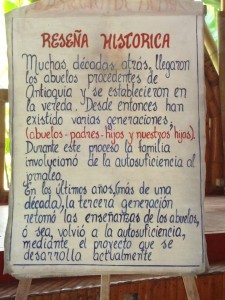 RESEÑA HISTORICA
Muchas décadas atrás, llegaron
los abuelos procedentes de
Antioquia y se establecieron en
la vereda. Desde entonces han
existido varias generaciones,
(abuelos-padres-hijos y nuestros hijos).
Durante este proceso la familia
involucionó de la autosuficiencia al
jornaleo.
En los últimos años, (más de una
década), la tercera generación
retomó las enseñanzas de los abuelos,
ó sea, volvió a la autosuficiencia,
mediante el proyecto que se
desarrolla actualmente